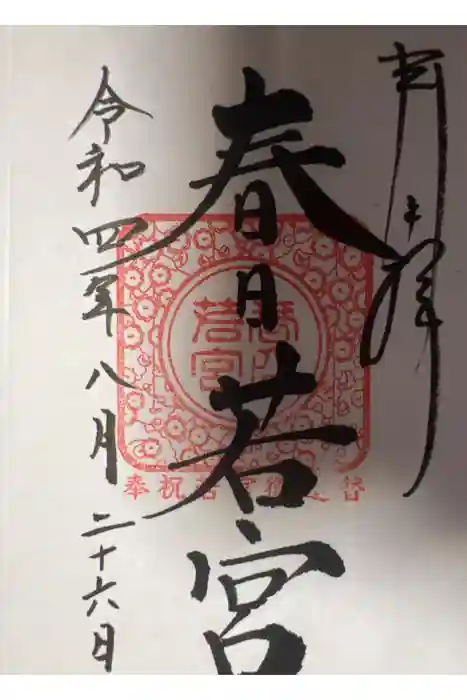 春日若宮
春日若宮
奉祝若宮御造替
令和四年八月二十六日